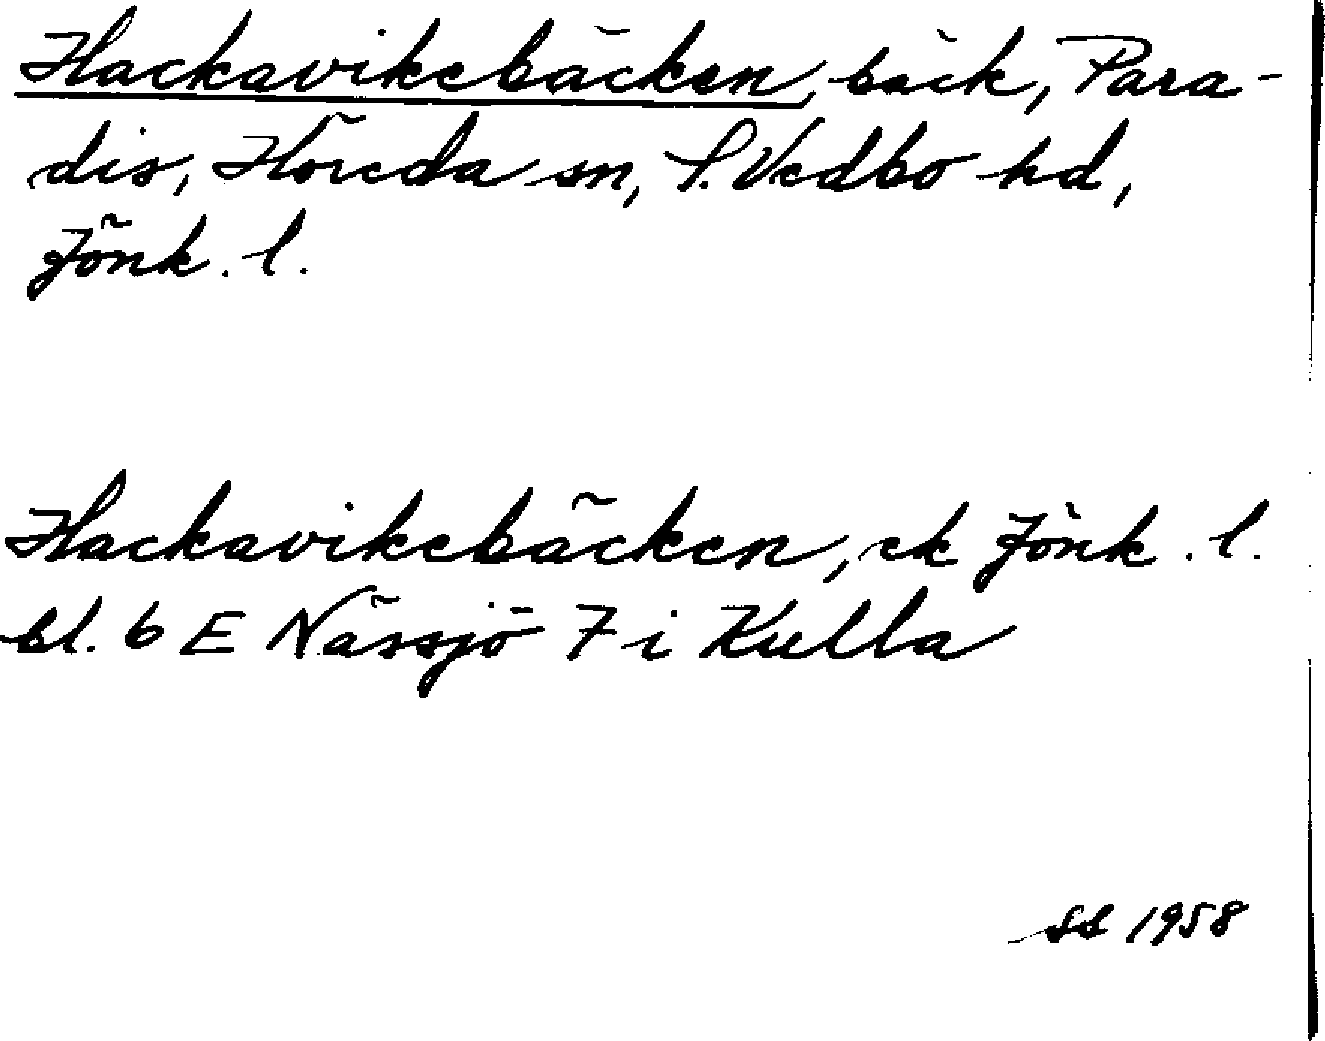 Hackavikebäcken, bäck, Para-
dis, Höreda sn, S. Vedbo hd,
Jönk. l.
Hackavikebäcken, ek Jönk. l.
bl. 6 E Nässjö 7 i Kulla
SS 1958